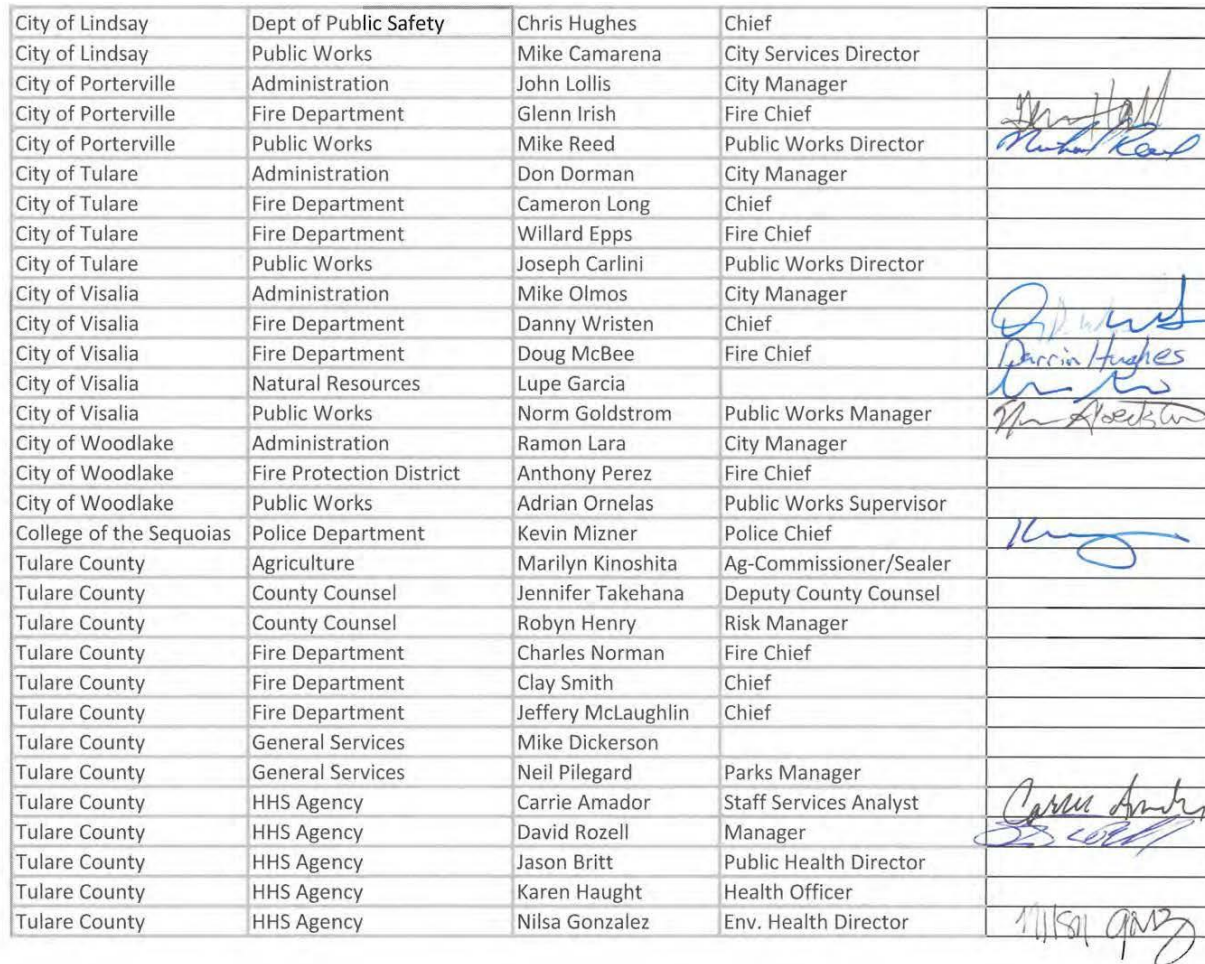 City of Lindsay Dept of Public Safety Chris Hughes Chief
City of Lindsay Public Works Mike Camarena City Services Director
City of Porterville Administration John Lollis City Manager
City of Porterville Fire Department Glenn Irish Fire Chief
City of Porterville Public Works Mike Reed Public Works Director
City of Tulare Administration Don Dorman City Manager
City of Tulare Fire Department Cameron Long Chief
City of Tulare Fire Department Willard Epps Fire Chief
City of Tulare Public Works Joseph Carlini Public Works Director
City of Visalia Administration Mike Olmos City Manager
City of Visalia Fire Department Danny Wristen Chief
City of Visalia Fire Department Doug McBee Fire Chief Darrin Hughes
City of Visalia Natural Resources Lupe Garcia
City of Visalia Public Works Norm Goldstrom Public Works Manager
City of Woodlake Administration Ramon Lara City Manager
City of Woodlake Fire Protection District Anthony Perez Fire Chief
City of Woodlake Public Works Adrian Ornelas Public Works Supervisor
College of the Sequoias Police Department Kevin Mizner Police Chief
Tulare County Agriculture Marilyn Kinoshita Ag-Commissioner/Sealer
Tulare County County Counsel Jennifer Takehana Deputy County Counsel
Tulare County County Counsel Robyn Henry Risk Manager
Tulare County Fire Department Charles Norman Fire Chief
Tulare County Fire Department Clay Smith Chief
Tulare County Fire Department Jeffery McLaughlin Chief
Tulare County General Services Mike Dickerson
Tulare County General Services Neil Pilegard Parks Manager
Tulare County HHS Agency Carrie Amador Staff Services Analyst
Tulare County HHS Agency David Rozell Manager
Tulare County HHS Agency Jason Britt Public Health Director
Tulare County HHS Agency Karen Haught Health Officer
Tulare County HHS Agency Nilsa Gonzalez Env. Health Director